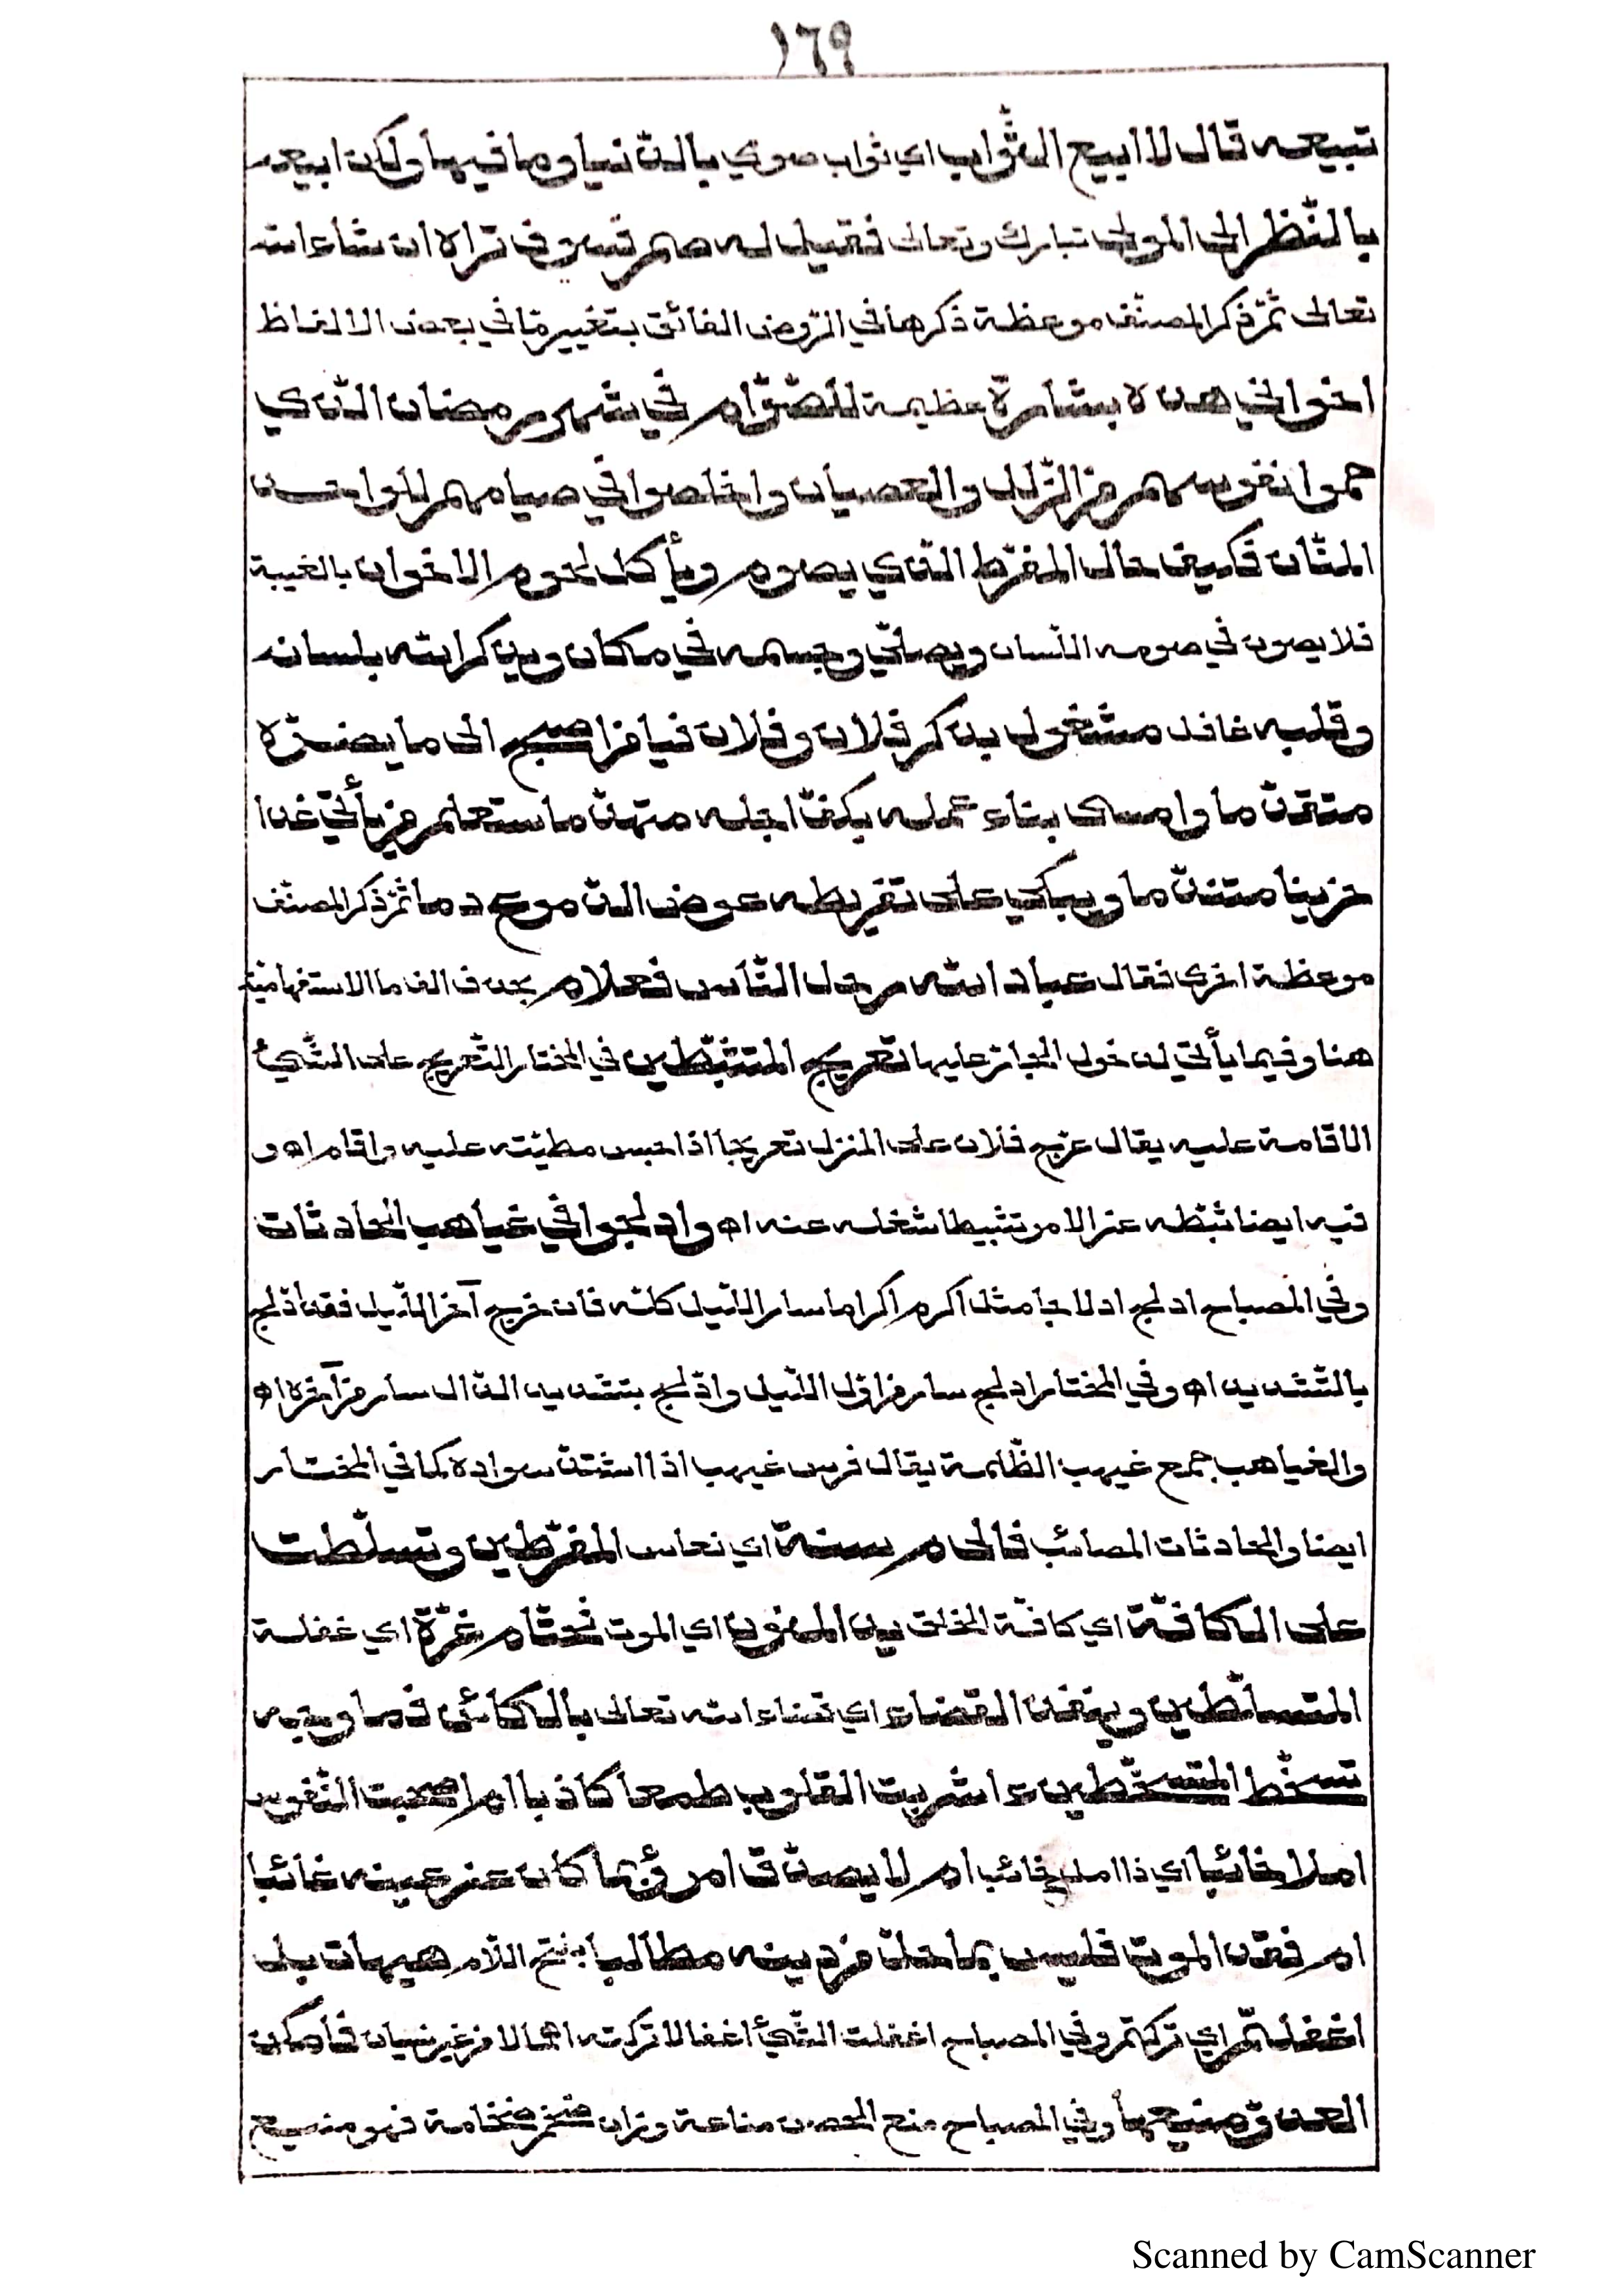 ١٦٩
تبيعه قال لا ابيع الثّواب اي ثواب صومي بالدّنيا وما فيها ولكن ابيعه
بالنّظر الى المولى تبارك وتعالى فقيل له صم فسوف تراه ان شاء الله
تعالى ثمّ ذكر المصنّف موعظة ذكرها في الرّوض الفائق بتغيير مّا في بعض الالفاظ
اخواني هذه بشارة عظيمة للصّوّام في شهر رمضان الذي
حموا نفوسهم من الزّلل والعصيان واخلصوا في صيامهم للواحد
المنّان فكيف حال المفرّط الذي يصوم ويأكل لحوم الاخوان بالغيبة
فلا يصون في صومه اللّسان ويصلّي وجسمه في مكان ويذكر الله بلسانه
وقلبه غافل مشغول بذكر فلان وفلان فيا من اصبح الى ما يضرّه
متقدّما وامسى بناء عمله بكفّ اجله متهدّما ستعلم من يأتي غدا
حزينا متندّما ويبكي على تفريطه عوض الدّموع دما ثمّ ذكر المصنّف
موعظة اخرى فقال عباد الله رحل النّاس فعلام بحذف الف ما الاستفهاميّة
هنا وفيما يأتي لدخول الجارّ عليها تعريج المتثبّطين في المختار التّعريج على الشّيئ
الاقامة عليه يقال عرّج فلان على المنزل تعريجا اذا حبس مطيّته عليه واقام اه و
فيه ايضا ثبّطه عن الامر تثبيطا شغله عنه اه وادلجوا في غياهب الحادثات
وفي المصباح ادلج ادلاجا مثل اكرم اكراما سار اللّيل كلّه فان خرج آخر اللّيل فقد ادّلج
بالتّشديد اه وفي المختار ادلج سار من اوّل اللّيل وادّلج بتشديد الدّال سار من آخره اه
والغياهب جمع غيهب الظّلمة يقال فرس غيهب اذا اشتدّ سواده كما في المختار
ايضا والحادثات المصائب فالام سنة اي نعاس المفرّطين وتسلّطت
على الكافّة اي كافّة الخلق يد المنون اي الموت فحتّام غرّة اي غفلة
المتسلّطين وينفذ القضاء اي قضاء الله تعالى بالكائن فما وجه
تسخّط المتسخّطين ء اشربت القلوب طمعا كاذبا ام اصحبت النّفوس
املا خائبا اي ذا امل خائب ام لا يصدّق امرؤ بما كان عن عينه غائبا
ام فقد الموت فليس بما حلّ من دينه مطالبا بفتح اللّام هيهات بل
اغفلتم اي تركتم وفي المصباح اغفلت الشّيئ اغفالا تركته اهمالا من غير نسيان فامكن
العدوّ منيعها وفي المصباح منع الحصن مناعة وزان ضخم ضخامة فهو منيع
Scanned by CamScanner